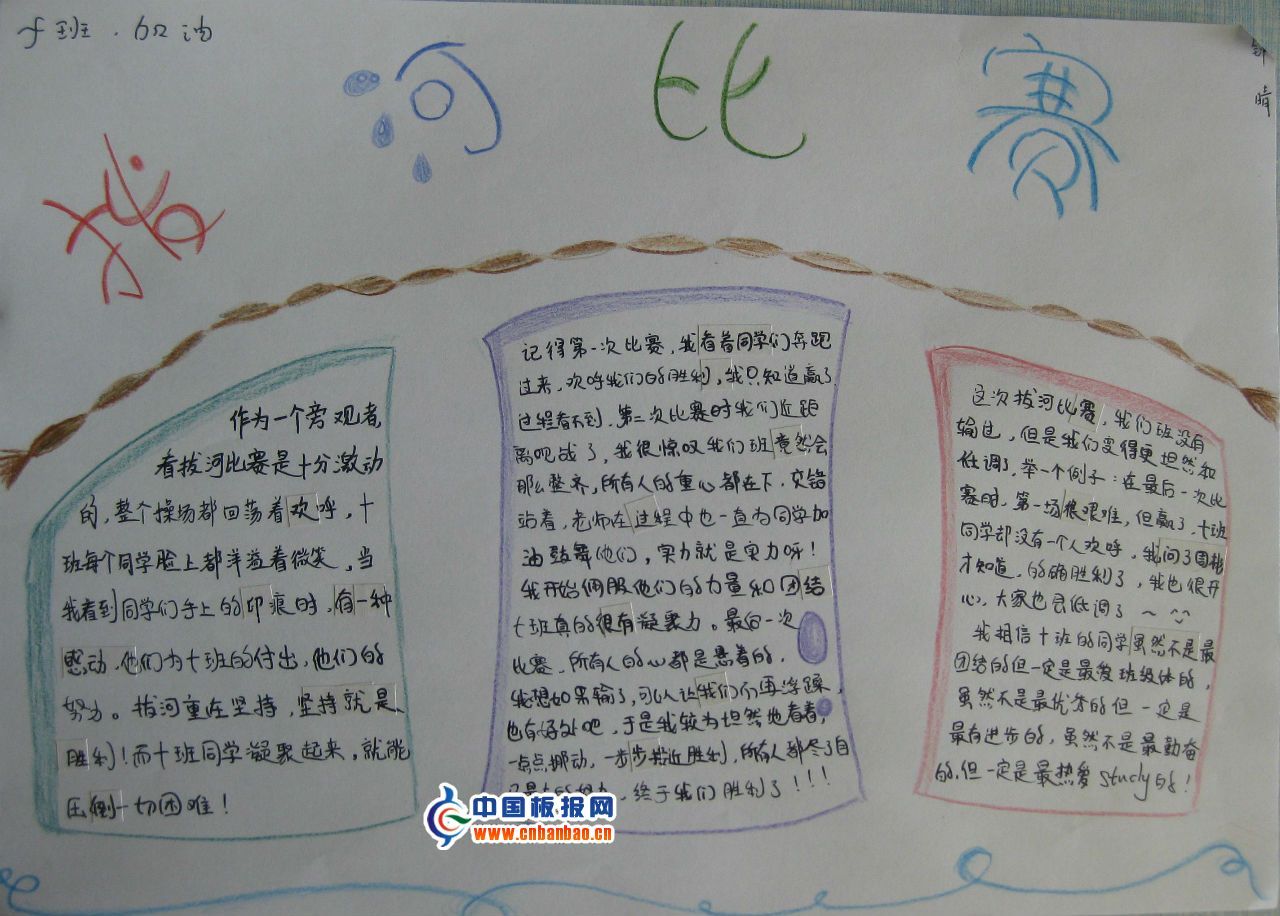 十班.加油
拔河比赛
晴
作为一个旁观者
看拔河比赛是十分激动
的,整个操场都回荡着欢呼,十
班每个同学脸上都洋溢着微笑,当
我看到同学们手上的印痕时,有一种
感动,他们为十班的付出,他们的
努力。拔河重在坚持,坚持就是
胜利!而十班同学凝聚起来,就能
压倒一切困难!
记得第一次比赛,我看着同学们奔跑
过来,欢呼我们的胜利,我只知道赢了,
过程看不到,第二次比赛时我们近距
离观战了,我很惊叹我们班竟然会
那么整齐,所有人的重心都在下,交错
站着,老师在过程中也一直为同学加
油鼓舞他们,实力就是实力呀!
我开始佩服他们的力量和团结
十班真的很有凝聚力。最后一次
比赛,所有人的心都是悬着的,
我想如果输了,可以让我们不再浮躁,
也有好处吧,于是我较为坦然地看着,
一点点挪动,一步步接近胜利,所有人都尽了自
己最大的努力,终于我们胜利了!!!
这次拔河比赛,我们班没有
输过,但是我们变得更坦然和
低调了,举一个例子:在最后一次比
赛时,第一场很艰难,但赢了,十班
同学却没有一个人欢呼,我问了
才知道,的确胜利了,我也很开
心,大家也会低调了~
我相信十班的同学虽然不是最
团结的但一定是最爱班级体的,
虽然不是最优秀的但一定是
最有进步的,虽然不是最勤奋
的,但一定是最热爱study的!
中国板报网
www.cnbanbao.cn